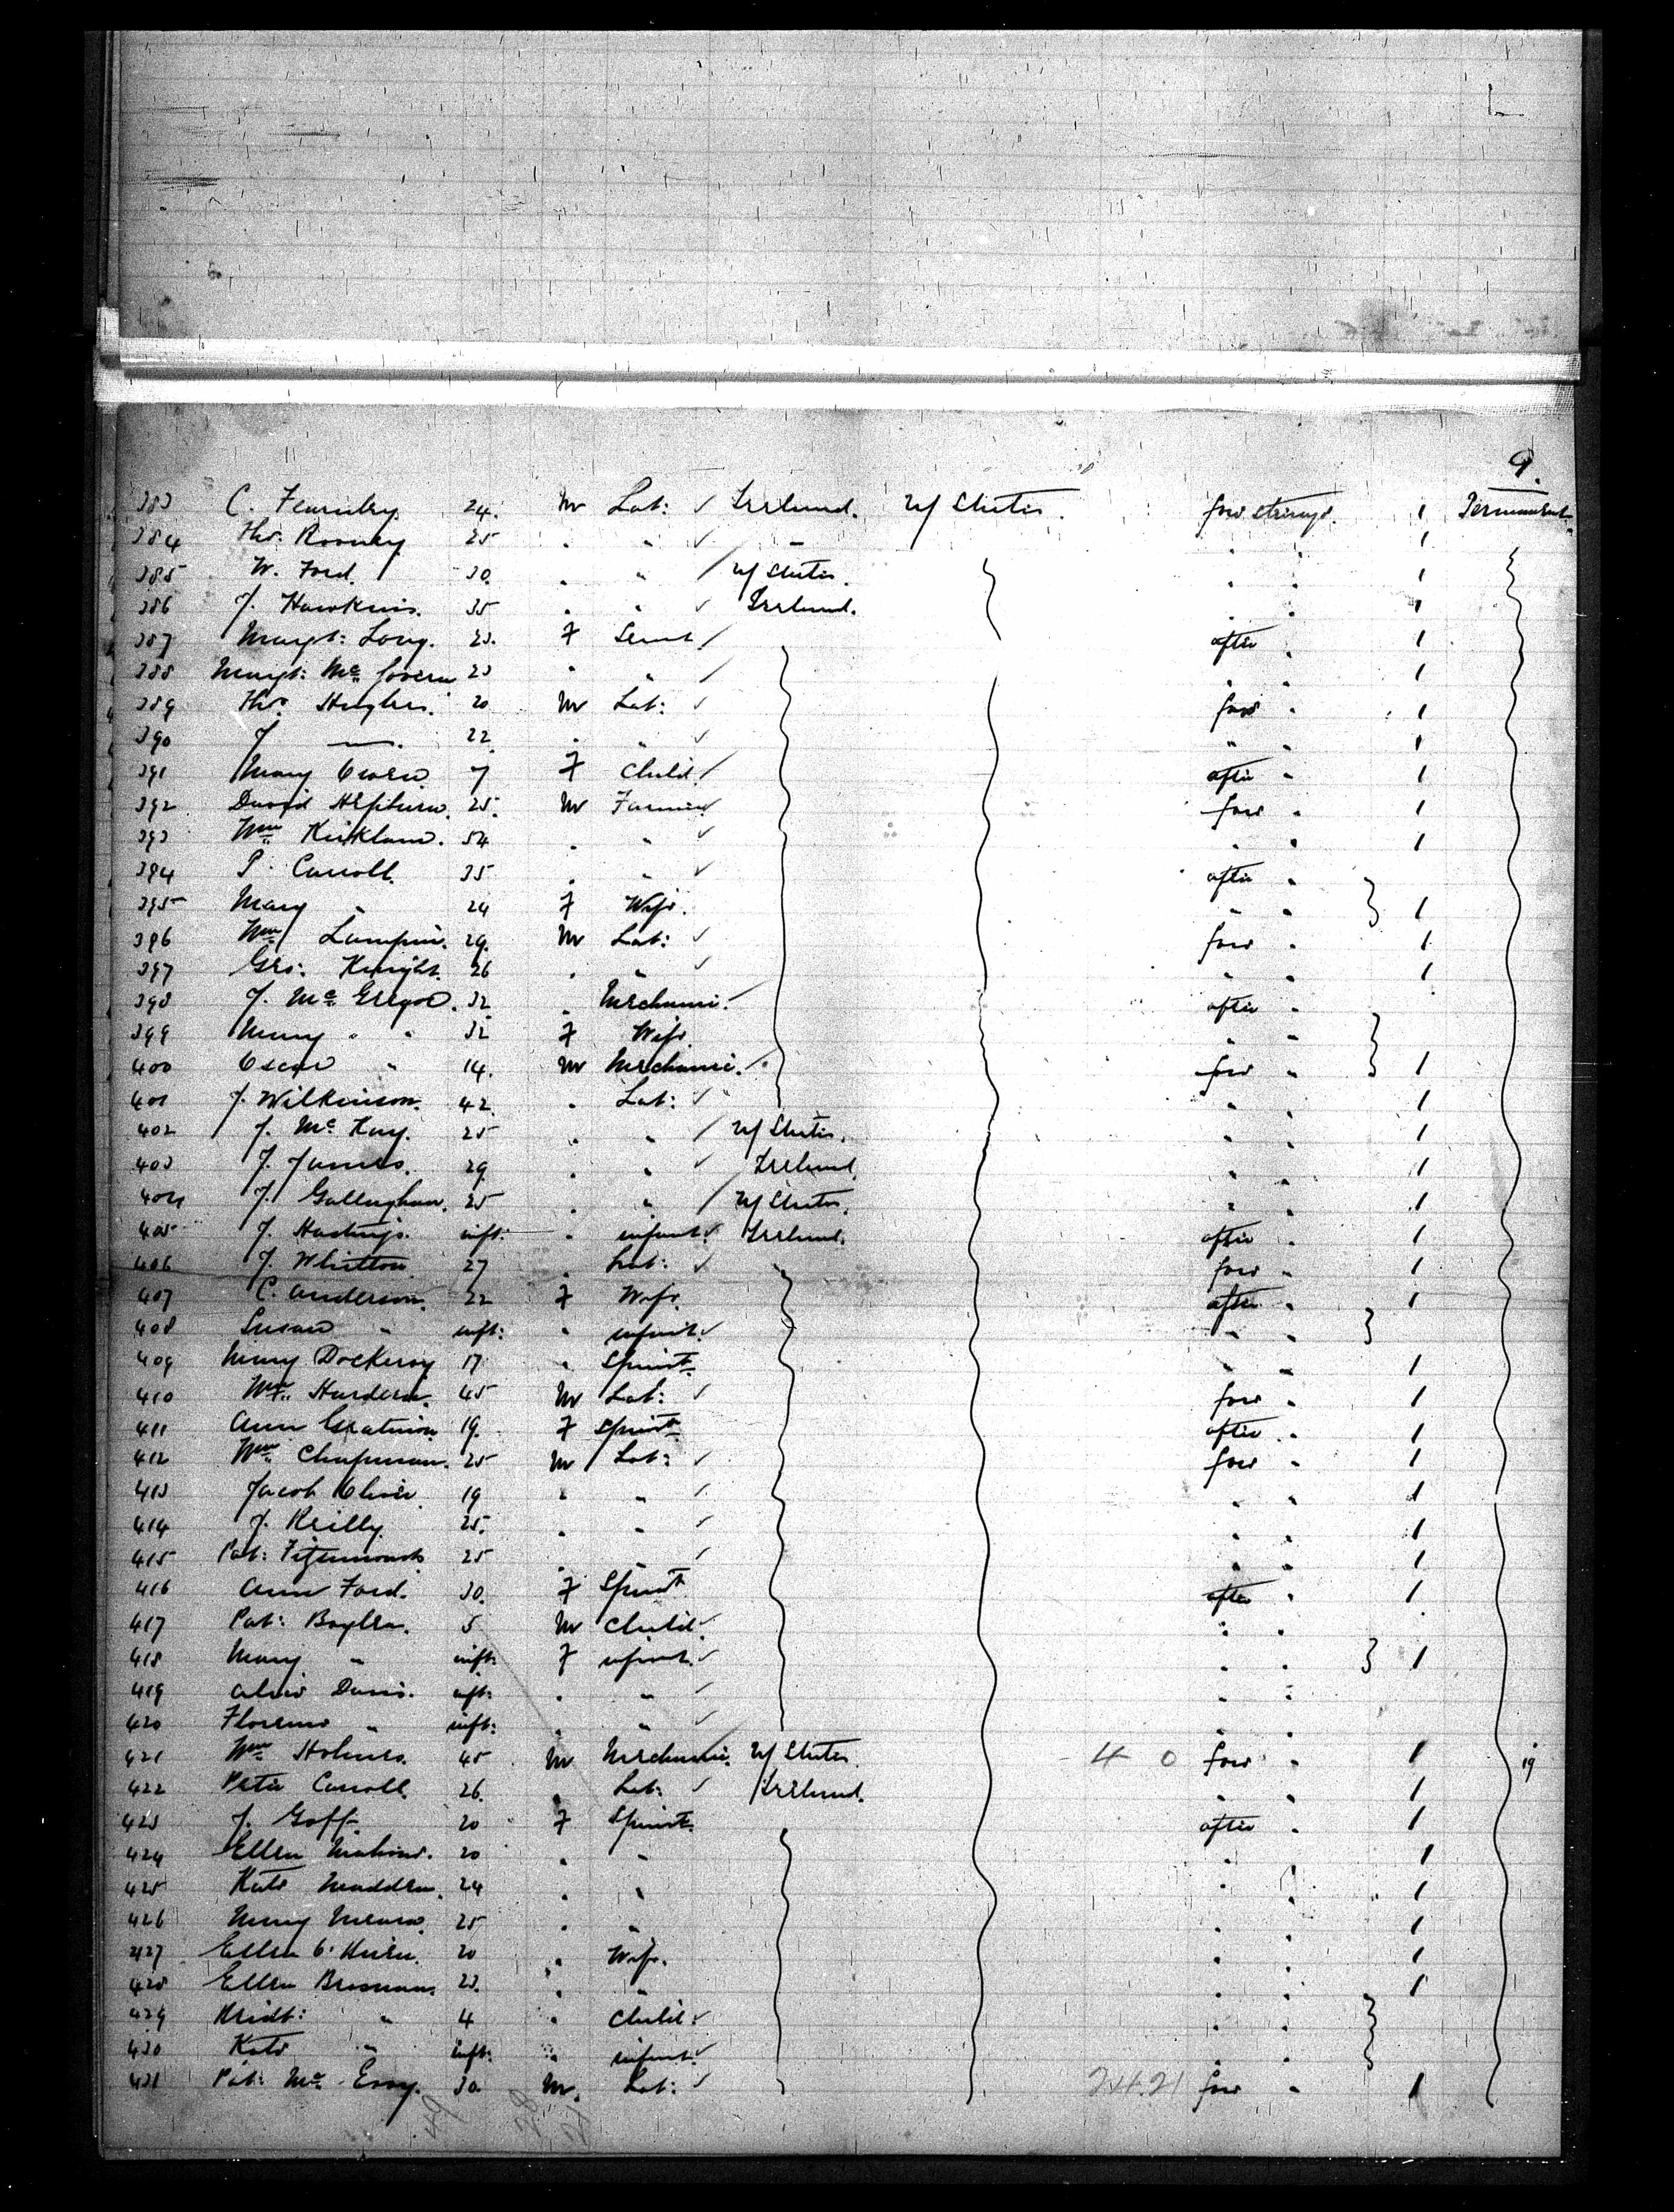 9.
383 C. Fearnley. 24. M Lab: ✓ Ireland. U/ States. forw steerage. 1 Permanent
384 Thos. Rooney 25 " " ✓ " " 1
385 W. Ford. 30. " " / U/ States. " " 1
386 J. Hawkins. 35 " " ✓ Ireland. " " 1
387 Margt: Long. 23. F Servt / after " 1
388 Margt: Mc Govern 23 " " / " " 1
389 Thos. Hughes. 20 M Lab: ✓ forw " 1
390 J — . 22 " " ✓ " " 1
391 Mary Owen 7 F Child / after " 1
392 David Hepburn. 25. M Farmer ✓ forw " 1
393 Wm Kirkland. 54 " " ✓ " " 1
394 P. Carroll. 35 " " ✓ after "
395 Mary " 24 F Wife. " " } 1
396 Wm 29. M Lab: ✓ forw " 1
397 Geo: Knight. 26 " " ✓ " " 1
398 J. Mc Gregor. 32 " Mechanic. ✓ after "
399 Mary " " 32 F Wife. " " }
400 Oscar " 14. M Mechanic. ✓ forw " 1
401 J. Wilkinson. 42. " Lab: ✓ " " 1
402 J. Mc Kay. 25 " " / U/ States. " " 1
403 J. James. 29. " " ✓ Ireland " " 1
404 J. Gallaghan. 25 " " / U/ States. " " 1
405 J. Hastings. inft: " infant. ✓ Ireland. after " 1
406 J. Whitton 27 " Lab: ✓ forw " 1
407 C. Anderson. 22 F Wife. after " 1
408 Susan " inft: " infant. ✓ " " }
409 Mary Dockeray 17 " Spinst. " " 1
410 Wm. Harden. 45 M Lab: ✓ forw " 1
411 Ann 19. F Spinst. after " 1
412 Wm. Chapman. 25 M Lab: ✓ forw " 1
413 Jacob Oliver. 19 " " ✓ " " 1
414 J. Reilly. 25. " " ✓ " " 1
415 Pat: Fitzsimmonds 25 " " ✓ " " 1
416 Ann Ford. 30. F Spinst after " 1
417 Pat: Boylen. 5 M Child. ✓ " "
418 Mary " inft: F infant. ✓ " " } 1
419 Davis. inft: " " ✓ " "
420 Florence " inft: " " ✓ " "
421 Wm. Holmes. 45 M Mechanic. ✓ U/ States 4 0 forw " 1
422 Peter Carroll. 26. " Lab: ✓ Ireland. " " 1
423 J. Goff. 20 F Spinst. after " 1
424 Ellen 20 " " " 1
425 Kate Madden. 24 " " " " 1
426 Mary 25 " " " " 1
427 Ellen O'Brien. 20 " Wife. " " 1
428 Ellen Brosnan. 23. " " " " 1
429 Bridt: " 4 " Child. ✓ " " }
430 Kate " inft: " infant. ✓ " "
431 Pat: Mc Evoy. 30. M. Lab: ✓ forw " 1